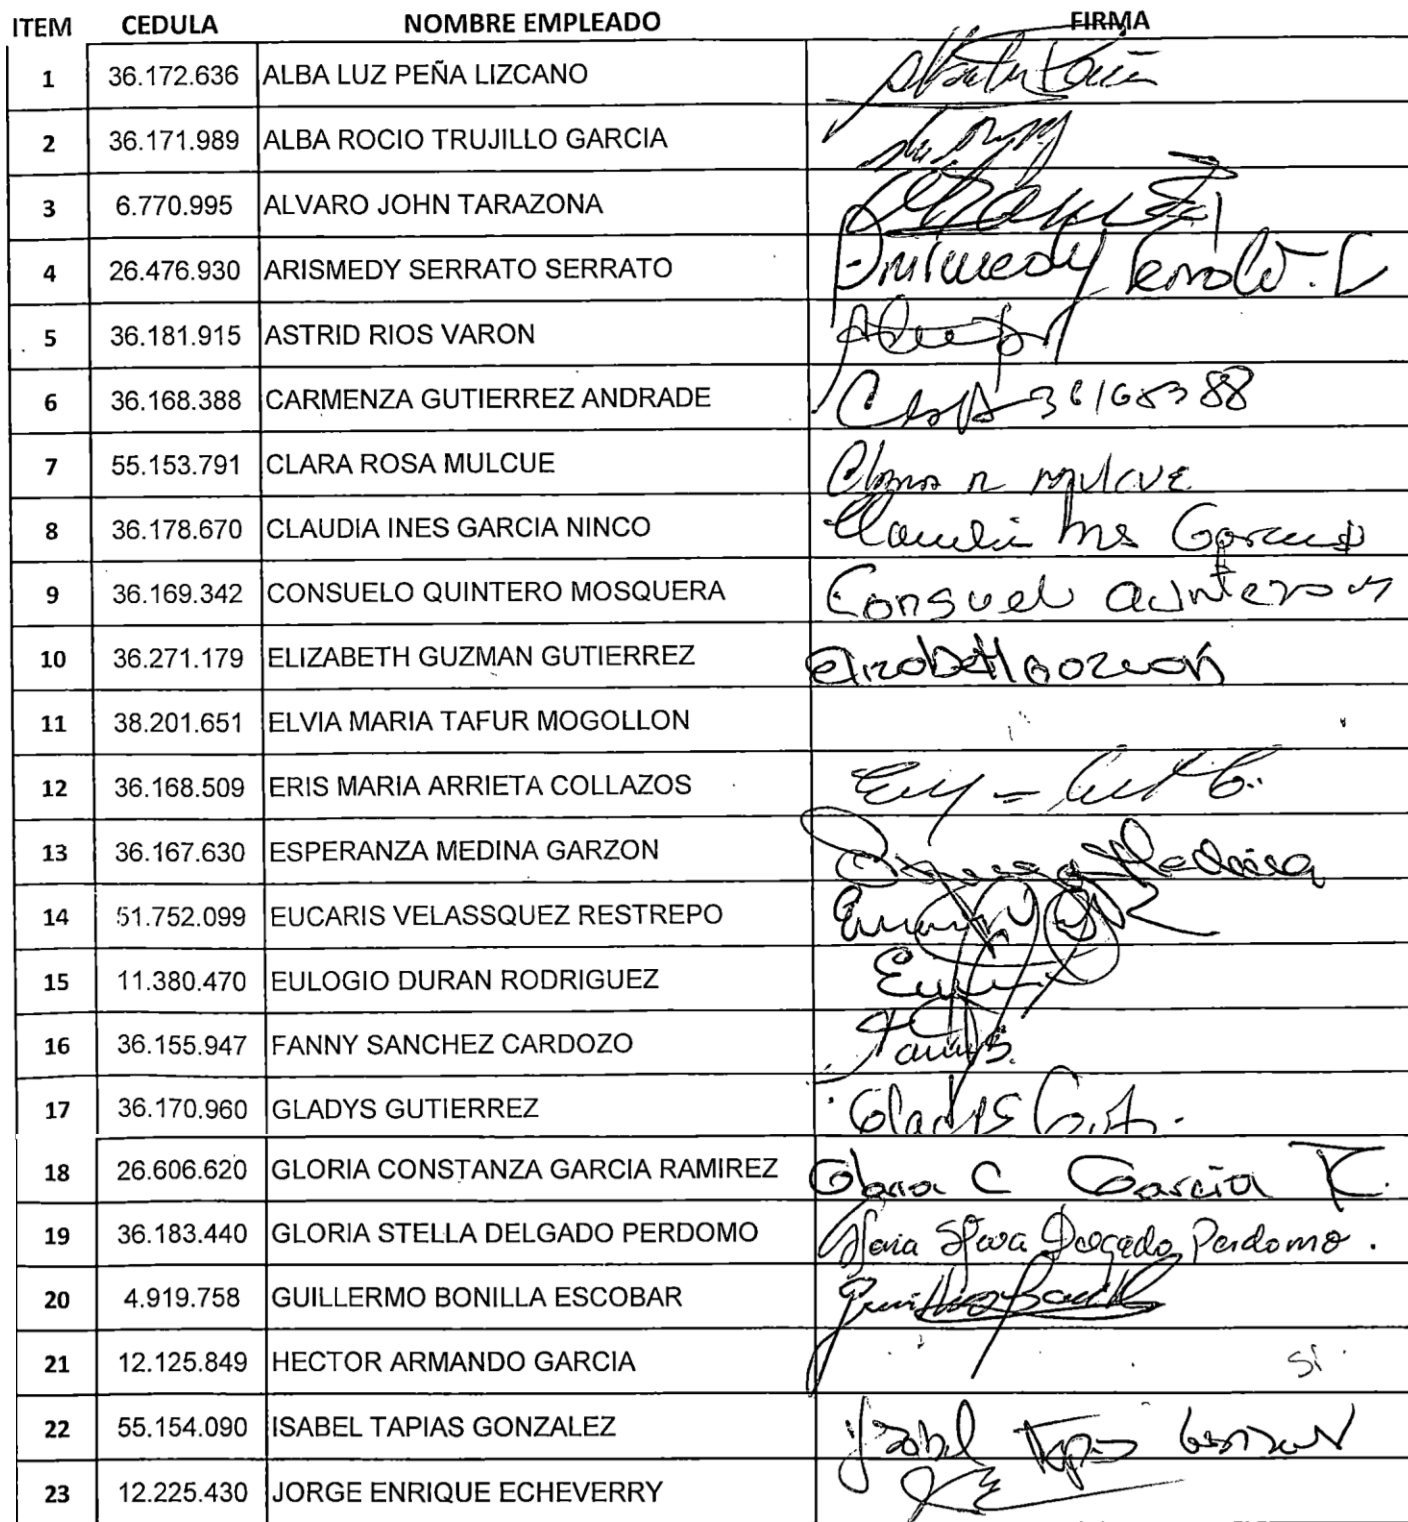 ITEM CEDULA NOMBRE EMPLEADO FIRMA
1 36.172.636 ALBA LUZ PEÑA LIZCANO
2 36.171.989 ALBA ROCIO TRUJILLO GARCIA
3 6.770.995 ALVARO JOHN TARAZONA
4 26.476.930 ARISMEDY SERRATO SERRATO
5 36.181.915 ASTRID RIOS VARON
6 36.168.388 CARMENZA GUTIERREZ ANDRADE 36168388
7 55.153.791 CLARA ROSA MULCUE Clara R MULCUE
8 36.178.670 CLAUDIA INES GARCIA NINCO Claudia Ines Garcia
9 36.169.342 CONSUELO QUINTERO MOSQUERA Consuelo Quintero M
10 36.271.179 ELIZABETH GUZMAN GUTIERREZ Elizabeth Guzman
11 38.201.651 ELVIA MARIA TAFUR MOGOLLON
12 36.168.509 ERIS MARIA ARRIETA COLLAZOS
13 36.167.630 ESPERANZA MEDINA GARZON Medina
14 51.752.099 EUCARIS VELASSQUEZ RESTREPO
15 11.380.470 EULOGIO DURAN RODRIGUEZ
16 36.155.947 FANNY SANCHEZ CARDOZO Fanny S.
17 36.170.960 GLADYS GUTIERREZ Gladys Gut.
18 26.606.620 GLORIA CONSTANZA GARCIA RAMIREZ Gloria C Garcia R.
19 36.183.440 GLORIA STELLA DELGADO PERDOMO Gloria Stella Delgado Perdomo.
20 4.919.758 GUILLERMO BONILLA ESCOBAR
21 12.125.849 HECTOR ARMANDO GARCIA si
22 55.154.090 ISABEL TAPIAS GONZALEZ Isabel Tapias
23 12.225.430 JORGE ENRIQUE ECHEVERRY